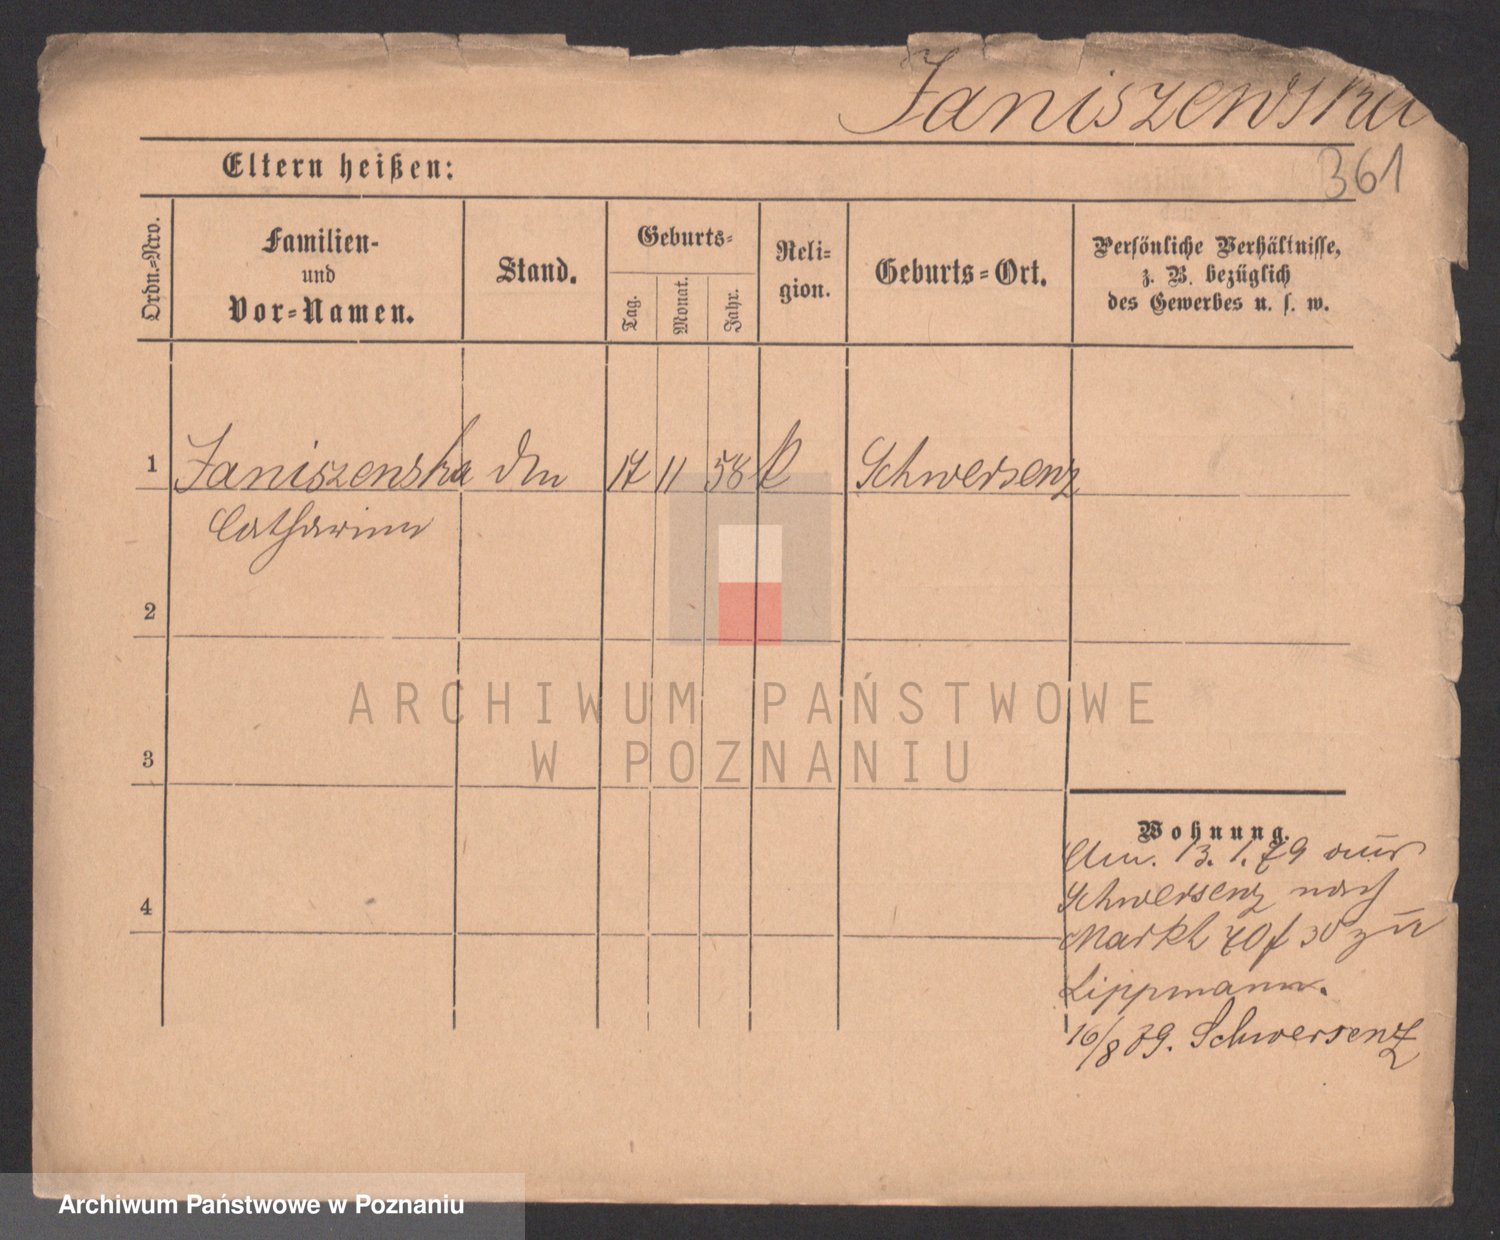 Janiszewska
361
Eltern heißen:
Ordn.-Nro.
Familien-
und
Vor-Namen.
Stand.
Geburts-
Tag.
Monat.
Jahr.
Reli-
gion.
Geburts-Ort.
Persönliche Verhältnisse,
z. B. bezüglich
des Gewerbes u. s. w.
1 Janiszewska 17 11 58 k Schwersenz
Catharina
2
3
4
Wohnung.
13. 1. 79 aus
Schwersenz nach
Markt 70 zu
Lippmann.
16/8 79. Schwersenz
ARCHIWUM PAŃSTWOWE
W POZNANIU
Archiwum Państwowe w Poznaniu